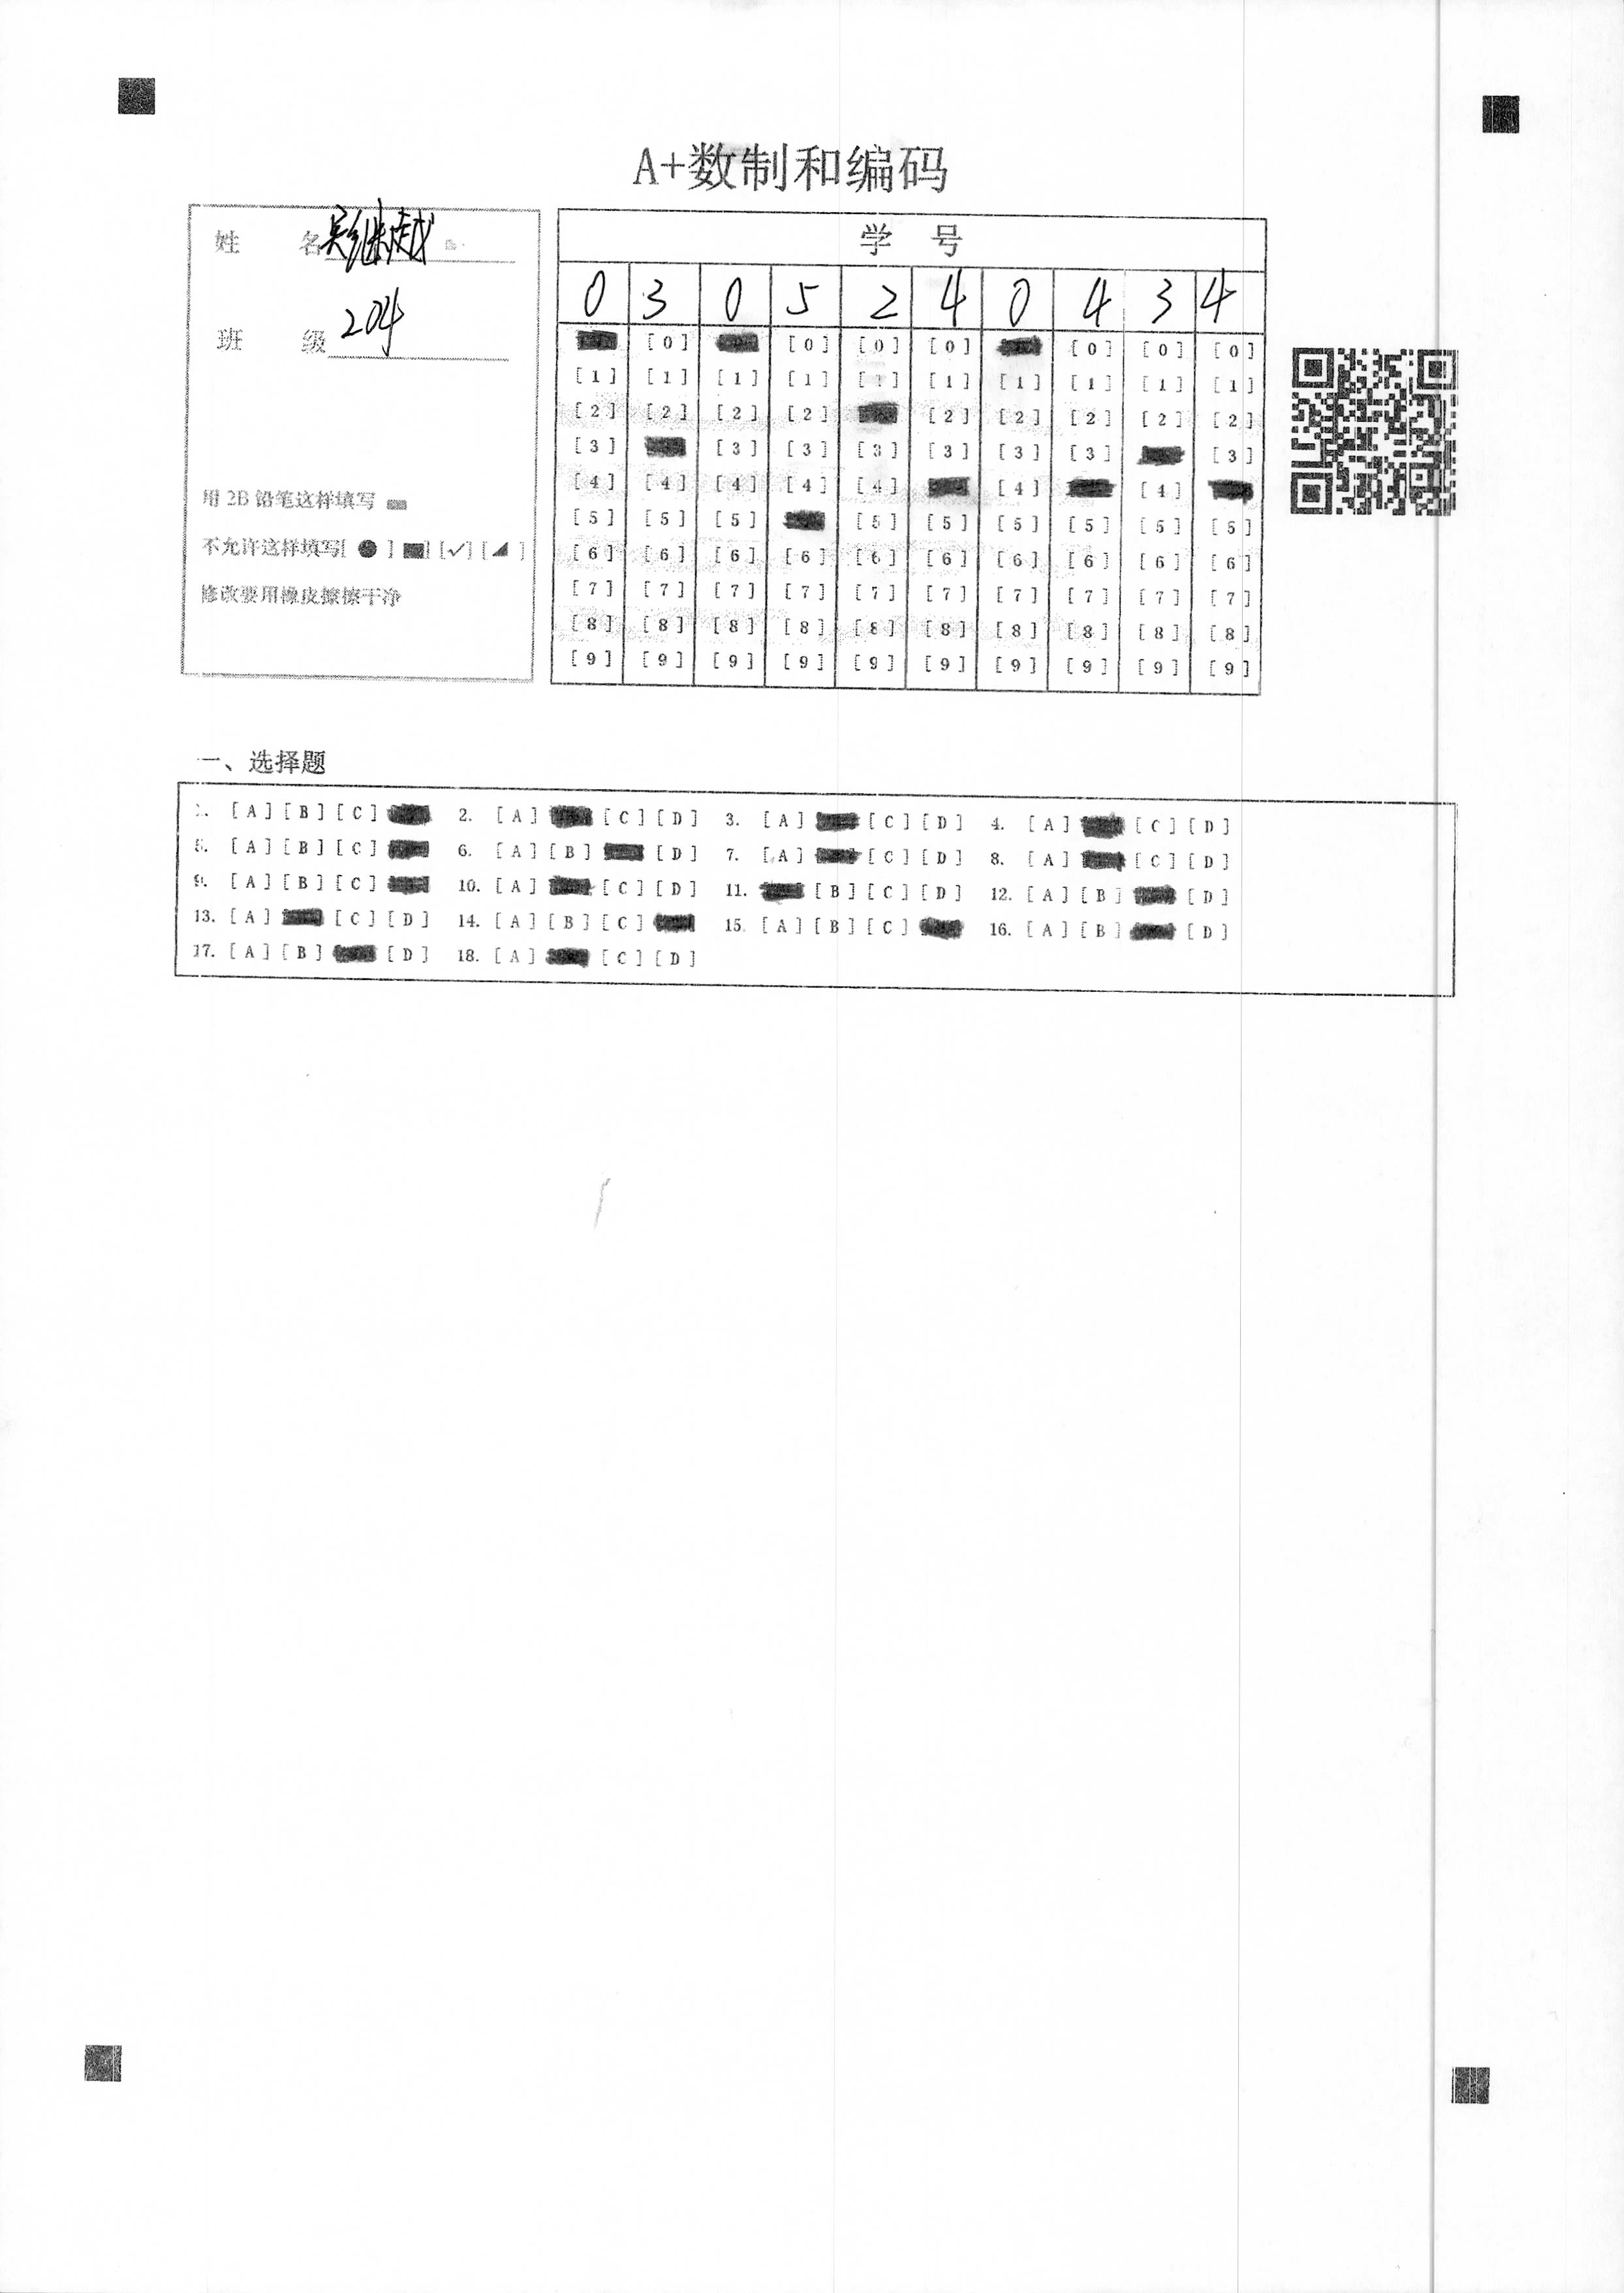 A+数制和编码
姓 名 吴继越
班 级 204
用 2B 铅笔这样填写
不允许这样填写[ ● ] [■] [✓] [◢ ]
修改要用橡皮擦擦干净
学 号
0 3 0 5 2 4 0 4 3 4
[0] [0] [0] [0] [0] [0] [0]
[1] [1] [1] [1] [1] [1] [1] [1] [1] [1]
[2] [2] [2] [2] [2] [2] [2] [2] [2]
[3] [3] [3] [3] [3] [3] [3] [3]
[4] [4] [4] [4] [4] [4] [4]
[5] [5] [5] [5] [5] [5] [5] [5] [5]
[6] [6] [6] [6] [6] [6] [6] [6] [6] [6]
[7] [7] [7] [7] [7] [7] [7] [7] [7] [7]
[8] [8] [8] [8] [8] [8] [8] [8] [8] [8]
[9] [9] [9] [9] [9] [9] [9] [9] [9] [9]
一、选择题
1. [A] [B] [C] 2. [A] [C] [D] 3. [A] [C] [D] 4. [A] [C] [D]
5. [A] [B] [C] 6. [A] [B] [D] 7. [A] [C] [D] 8. [A] [C] [D]
9. [A] [B] [C] 10. [A] [C] [D] 11. [B] [C] [D] 12. [A] [B] [D]
13. [A] [C] [D] 14. [A] [B] [C] 15. [A] [B] [C] 16. [A] [B] [D]
17. [A] [B] [D] 18. [A] [C] [D]